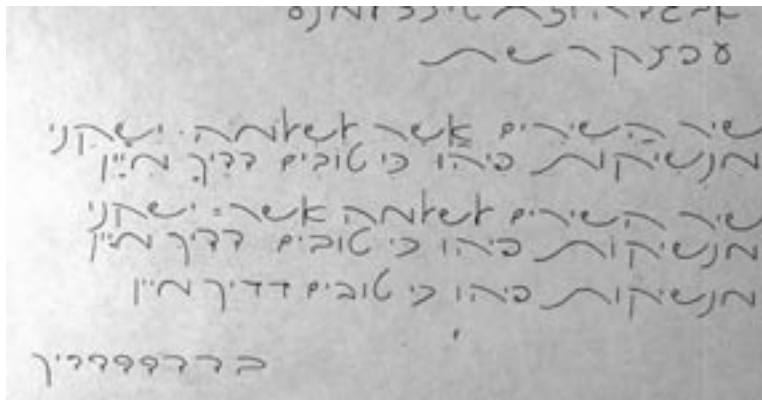 עפצקר שת
שיר הַשירים אֲשר לשלמה. ישקני
מנשיקות פיהו כי טובים דדיך מיין
שיר השירים לשלמה אשר: ישקני
מנשיקות פיהו כי טובים דדיך מיין
מנשיקות פיהו כי טובים דדיך מיין